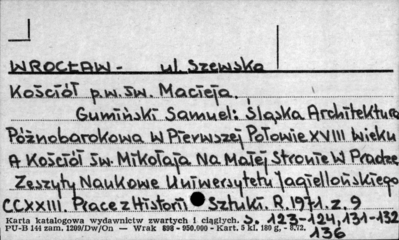 WROCŁAW - ul. Szewska
Kościół p.w. św. Macieja.
Gumiński Samuel: Śląska Architektura
Późnobarokowa w Pierwszej Połowie XVIII wieku
A Kościół św. Mikołaja Na Małej Stronie w Pradze
Zeszyty Naukowe Uniwersytetu Jagiellońskiego
CCXXIII. Prace z Historii Sztuki. R. 1971. z. 9
s. 123-124, 131-132
136
Karta katalogowa wydawnictw zwartych i ciągłych.
PU-B 144 zam. 1209/Dw/On — Wrak 898 - 950.000 - Kart. 5 kl. 180 g, - 8.72.